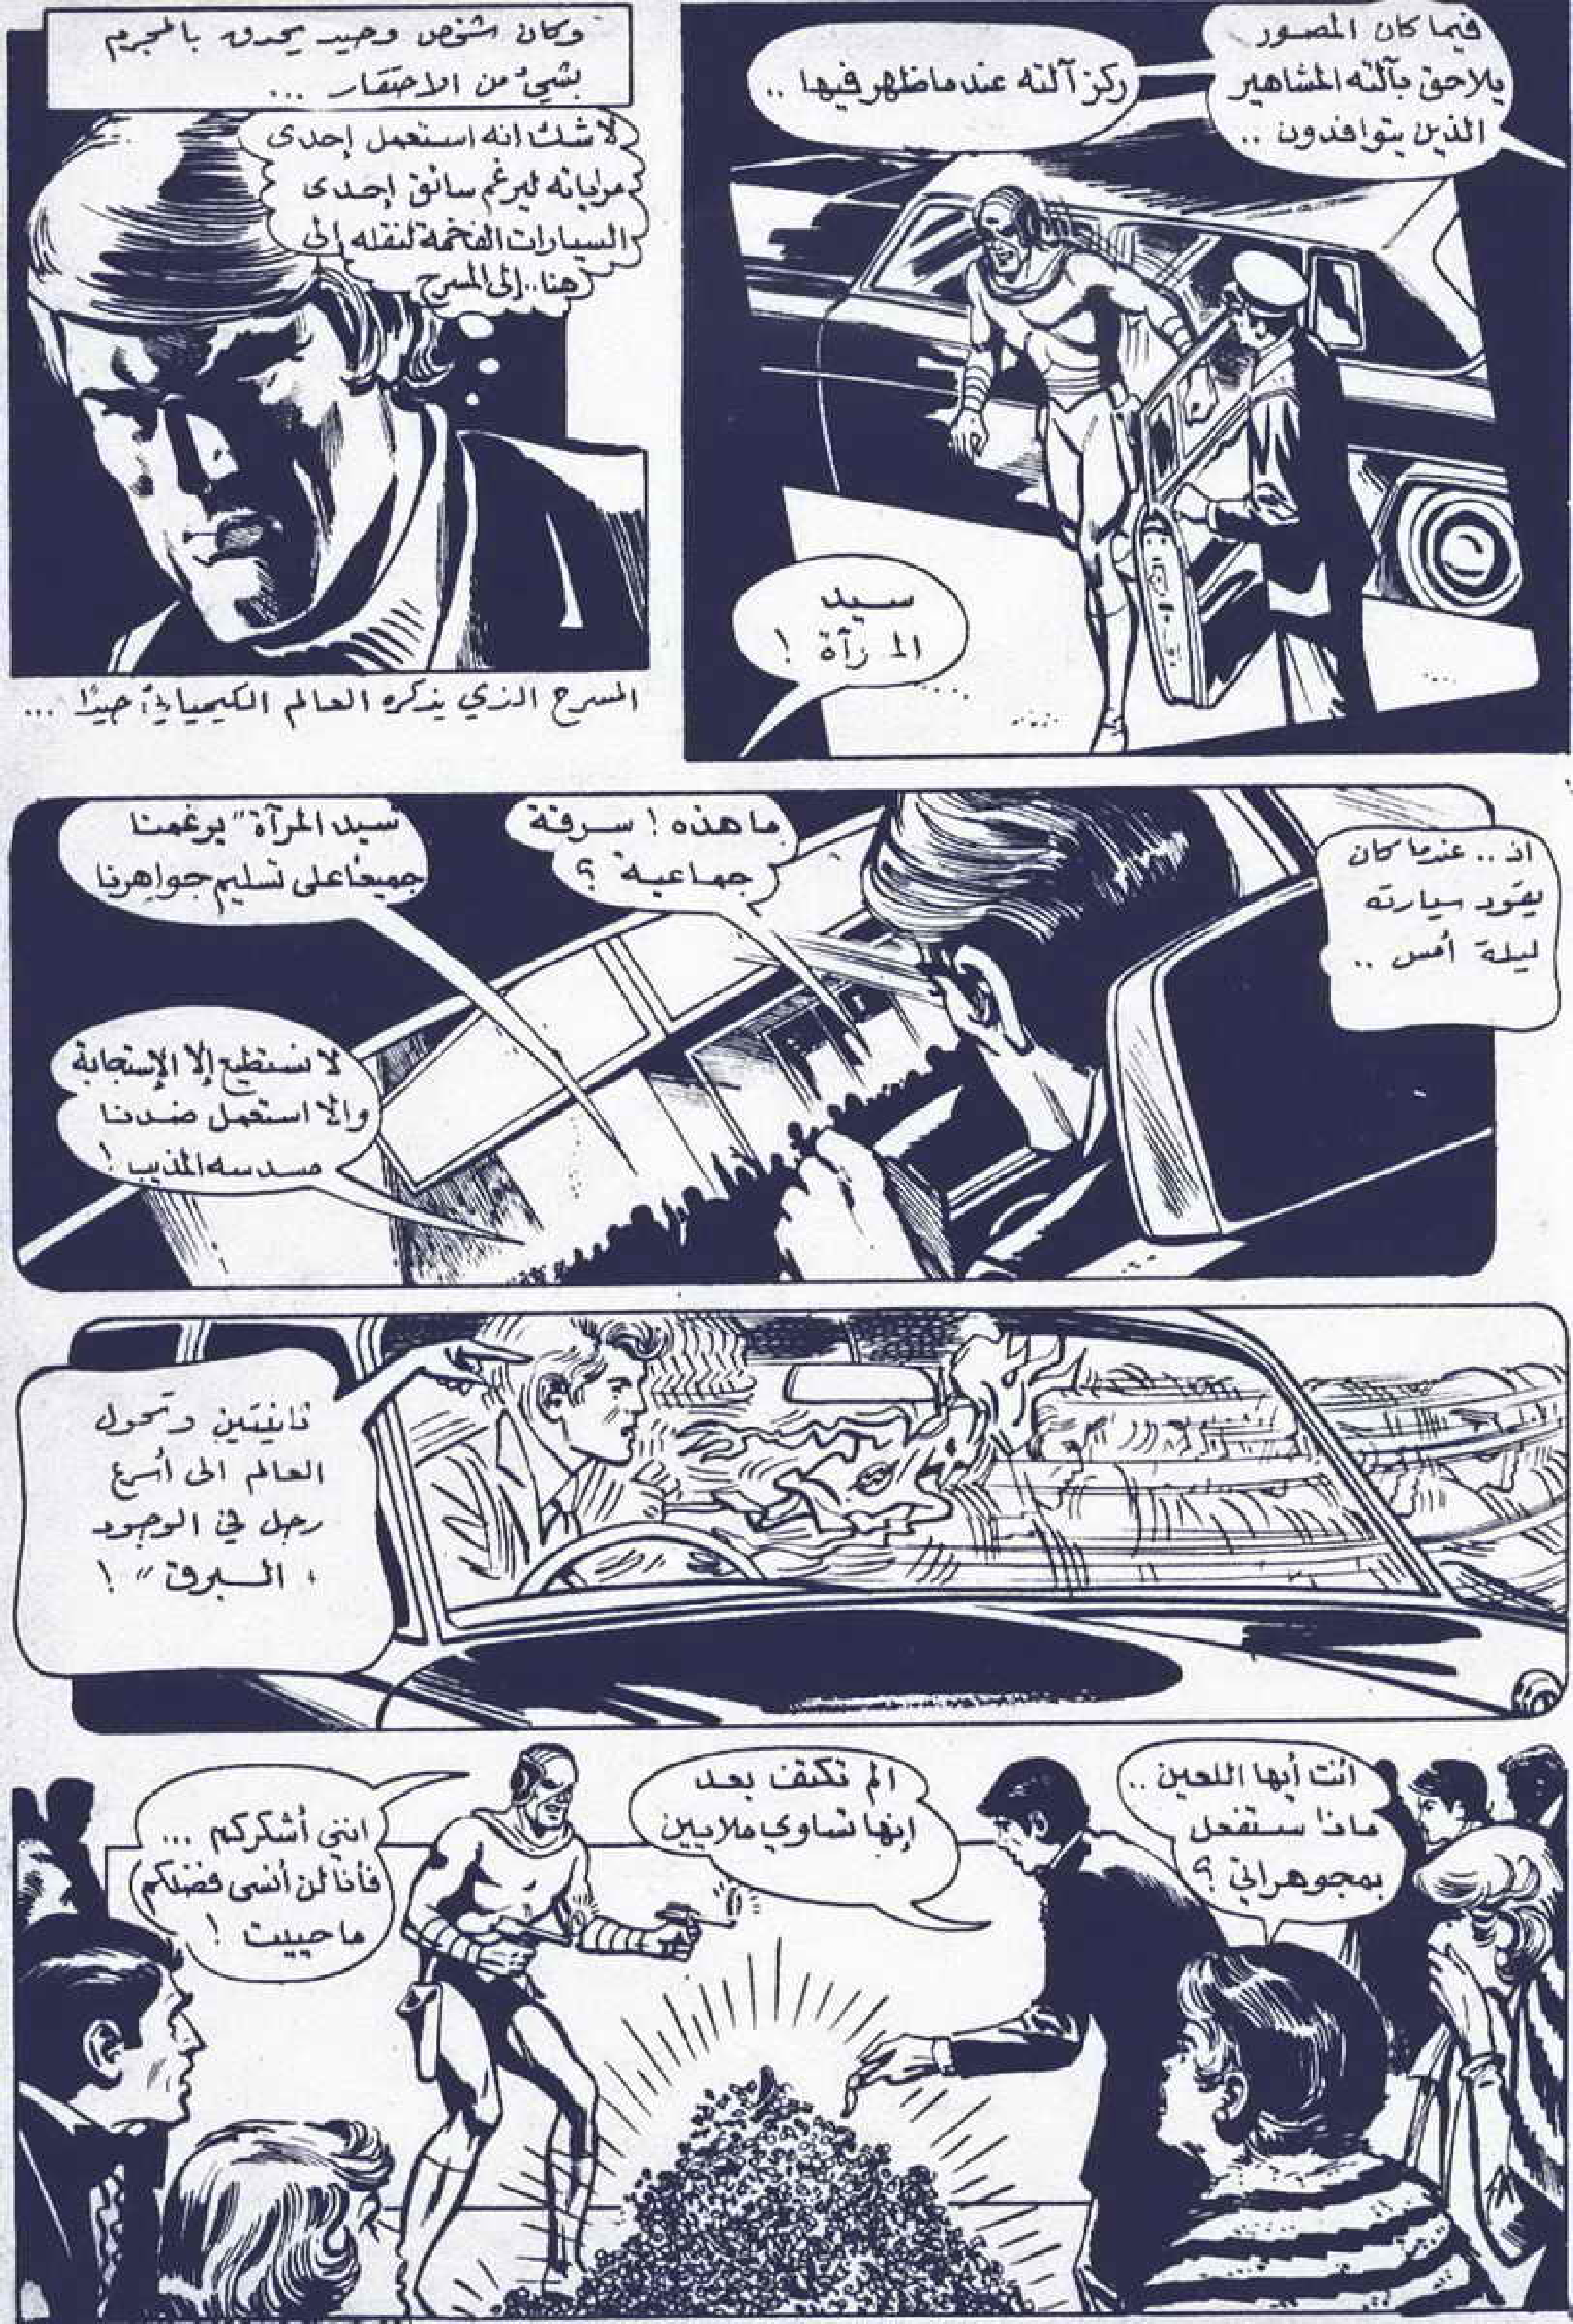 فيما كان المصور
يلاحق بآلته المشاهير
الذين يتوافدون ..
ركز آلته عندما ظهر فيها ..
سيد
المرآة !
وكان شخص وحيد يحدق بالمجرم
بشيء من الاحتقار ...
لا شك انه استعمل إحدى
مراياته ليرغم سائق إحدى
السيارات الفخمة لنقله إلى
هنا.. إلى المسرح
المسرح الذي يذكره العالم الكيميائي جيدًا ...
اذ .. عندما كان
يقود سيارته
ليلة أمس ..
ما هذه ! سرقة
جماعية ؟
سيد المرآة" يرغمنا
جميعًا على تسليم جواهرنا
لا نستطيع إلا الإستجابة
والا استعمل ضدنا
مسدسه المذيب !
ثانيتين وتحول
العالم الى أسرع
رجل في الوجود
" البرق " !
أنت أيها اللعين ..
ماذا ستفعل
بمجوهراتي ؟
الم تكتف بعد
إنها تساوي ملايين
انني أشكركم ...
فأنا لن أنسى فضلكم
ما حييت !